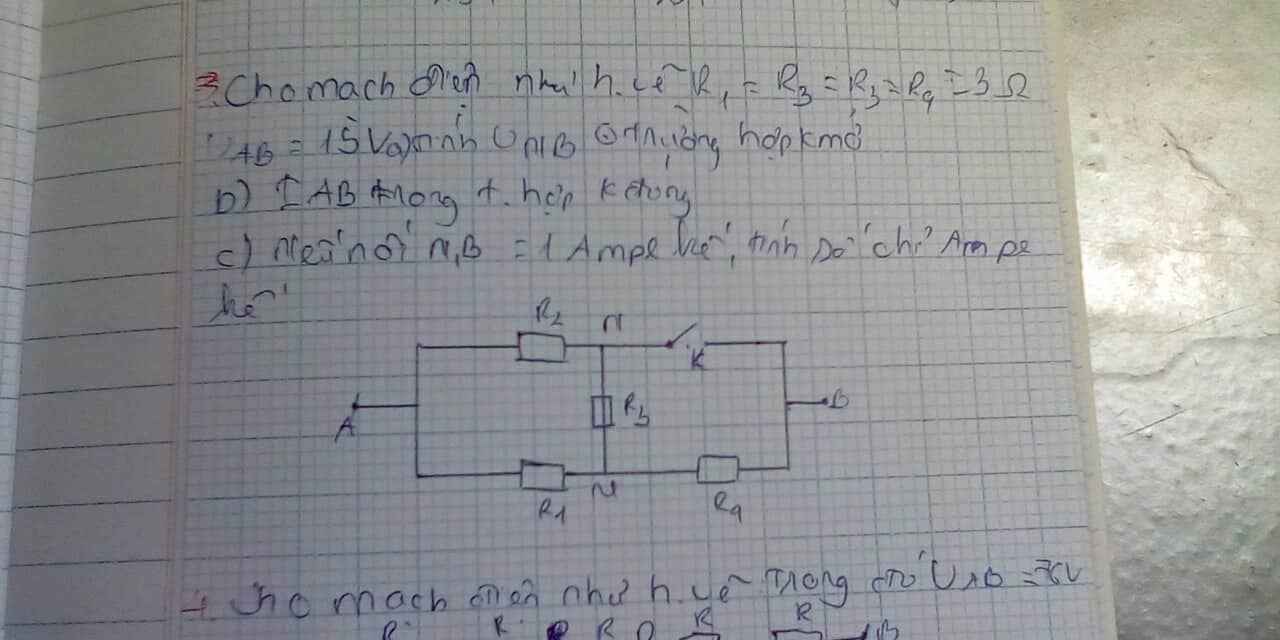 3. Cho mạch điện như h.vẽ R1 = R3 = R3 = R4 = 3 Ω
UAB = 15V a) tính UMB ở trường hợp k mở
b) IAB trong t. hợp K đóng
c) Nếu nối M,B = 1 Ampe kế, tính Số chỉ Ampe
kế
R2
K
R3
A
B
R1
N
R4
4 Cho mạch điện như h.vẽ Trong đó UAB =
R R R R R B